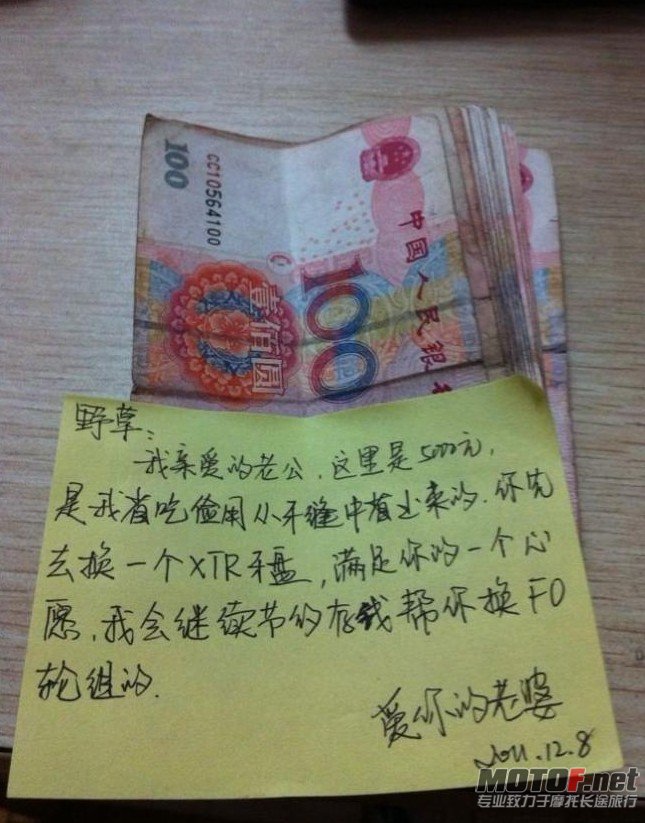 100
CC10564100
中国人民银
100
壹佰圆
野草：
我亲爱的老公，这里是5000元，
是我省吃俭用从牙缝中省出来的，你先
去换一个XTR牙盘，满足你的一个心
愿，我会继续节约存钱帮你换FO
轮组的.
爱你的老婆
2011.12.8
MOTOF.net
专业致力于摩托长途旅行